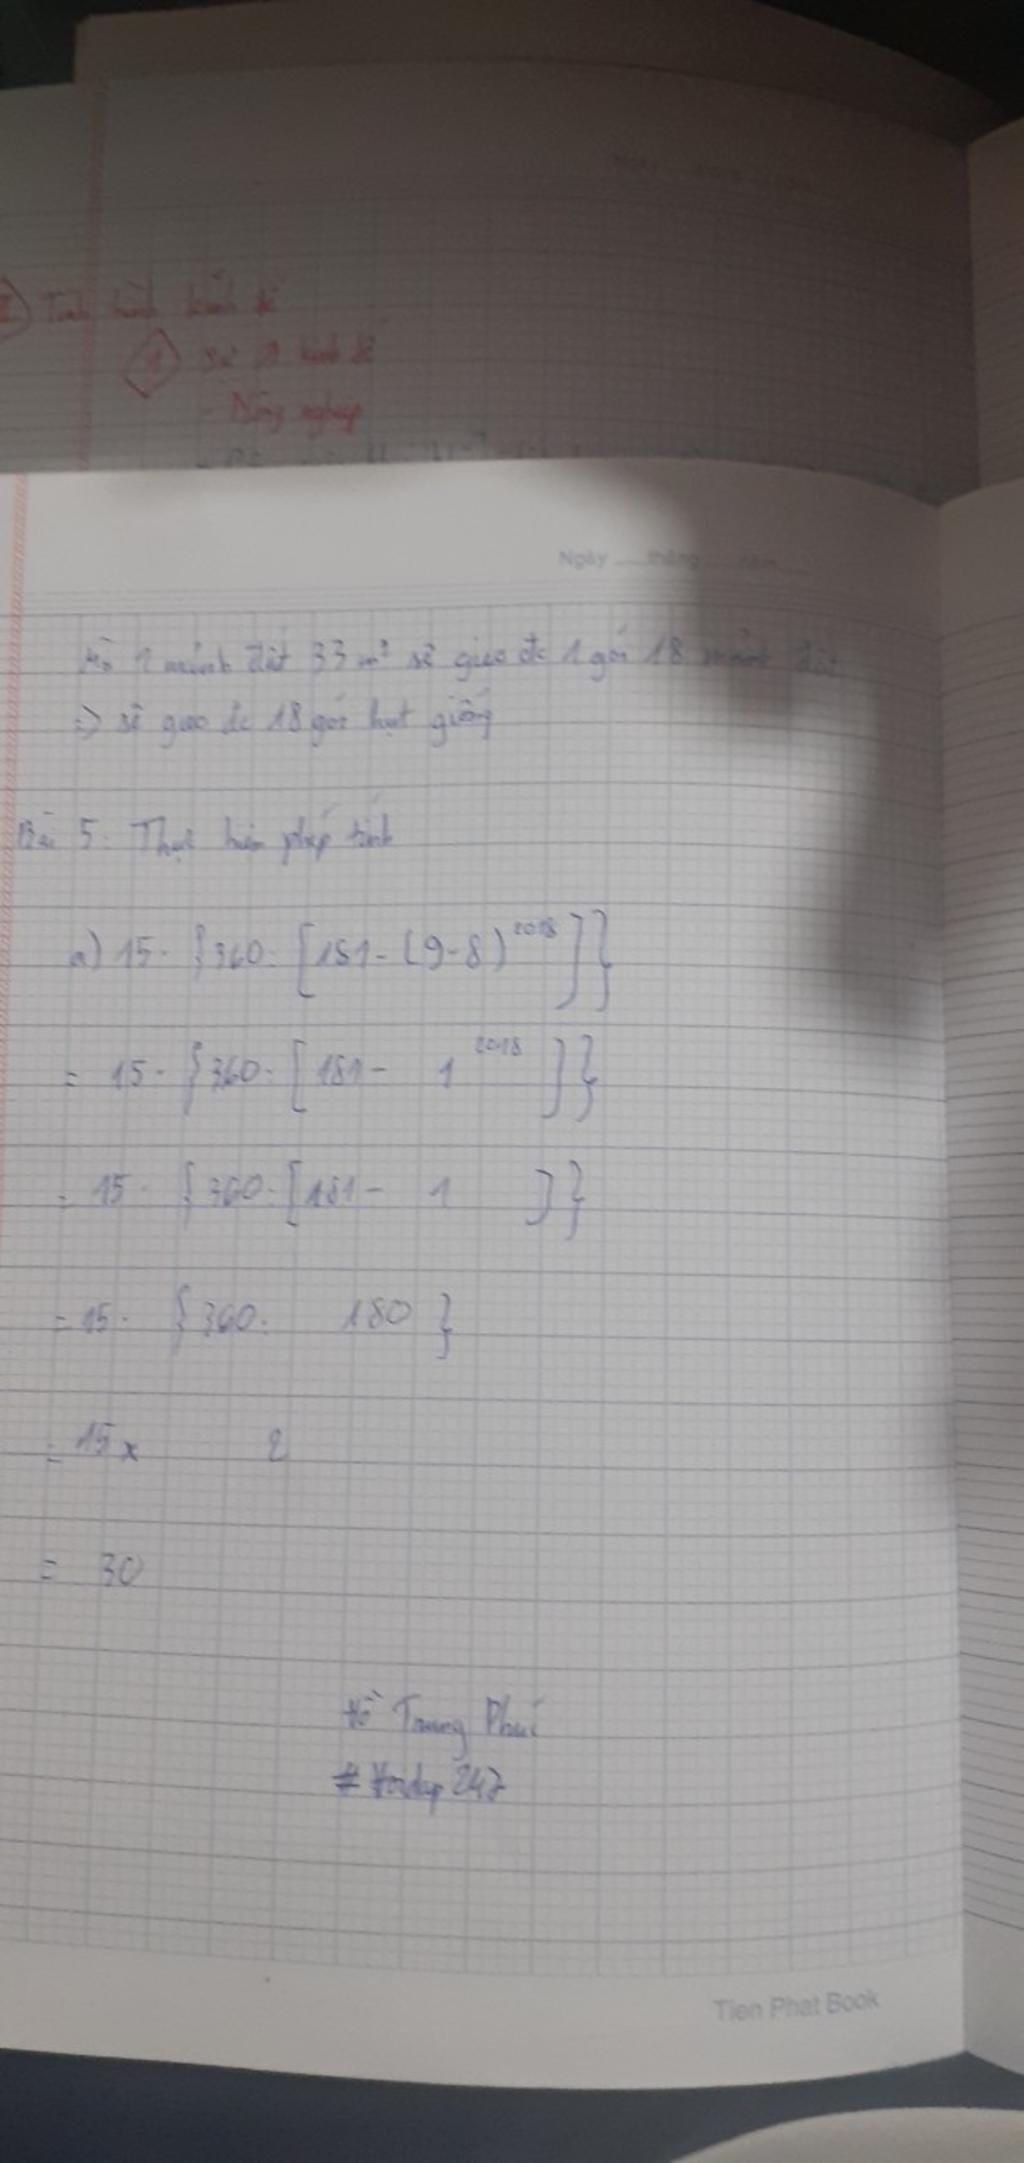 Tình hình kinh tế
1
kinh tế
- Nông nghiệp
Ngày tháng năm
1 mảnh đất 33 m² sẽ gieo đc 1 gói 18 mảnh đất
=> sẽ gieo đc 18 gói hạt giống
Bài 5: Thực hiện phép tính
a) 15 . {360 : [181 - (9-8)²⁰¹⁸]}
= 15 . {360 : [181 - 1²⁰¹⁸]}
= 15 . {360 : [181 - 1]}
= 15 . {360 : 180}
= 15 x 2
= 30
Hồ Trung Phúc
# Hoidap 247
Tien Phat Book